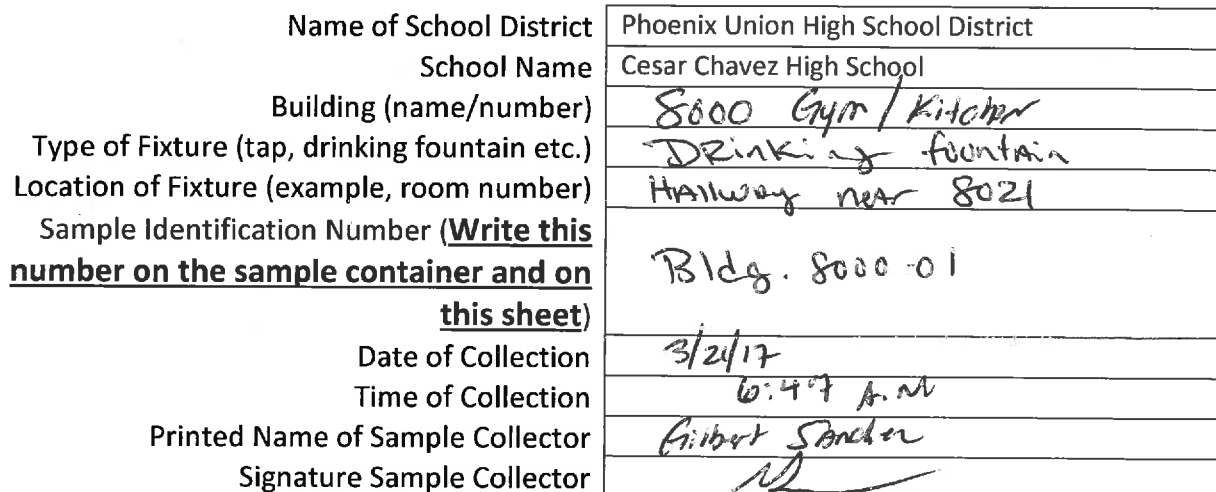 Name of School District Phoenix Union High School District
School Name Cesar Chavez High School
Building (name/number) 8000 Gym / Kitchen
Type of Fixture (tap, drinking fountain etc.) DRinking fountain
Location of Fixture (example, room number) HAllway near 8021
Sample Identification Number (Write this
number on the sample container and on
this sheet) Bldg. 8000-01
Date of Collection 3/21/17
Time of Collection 6:47 A.M
Printed Name of Sample Collector Gilbert Sanchez
Signature Sample Collector